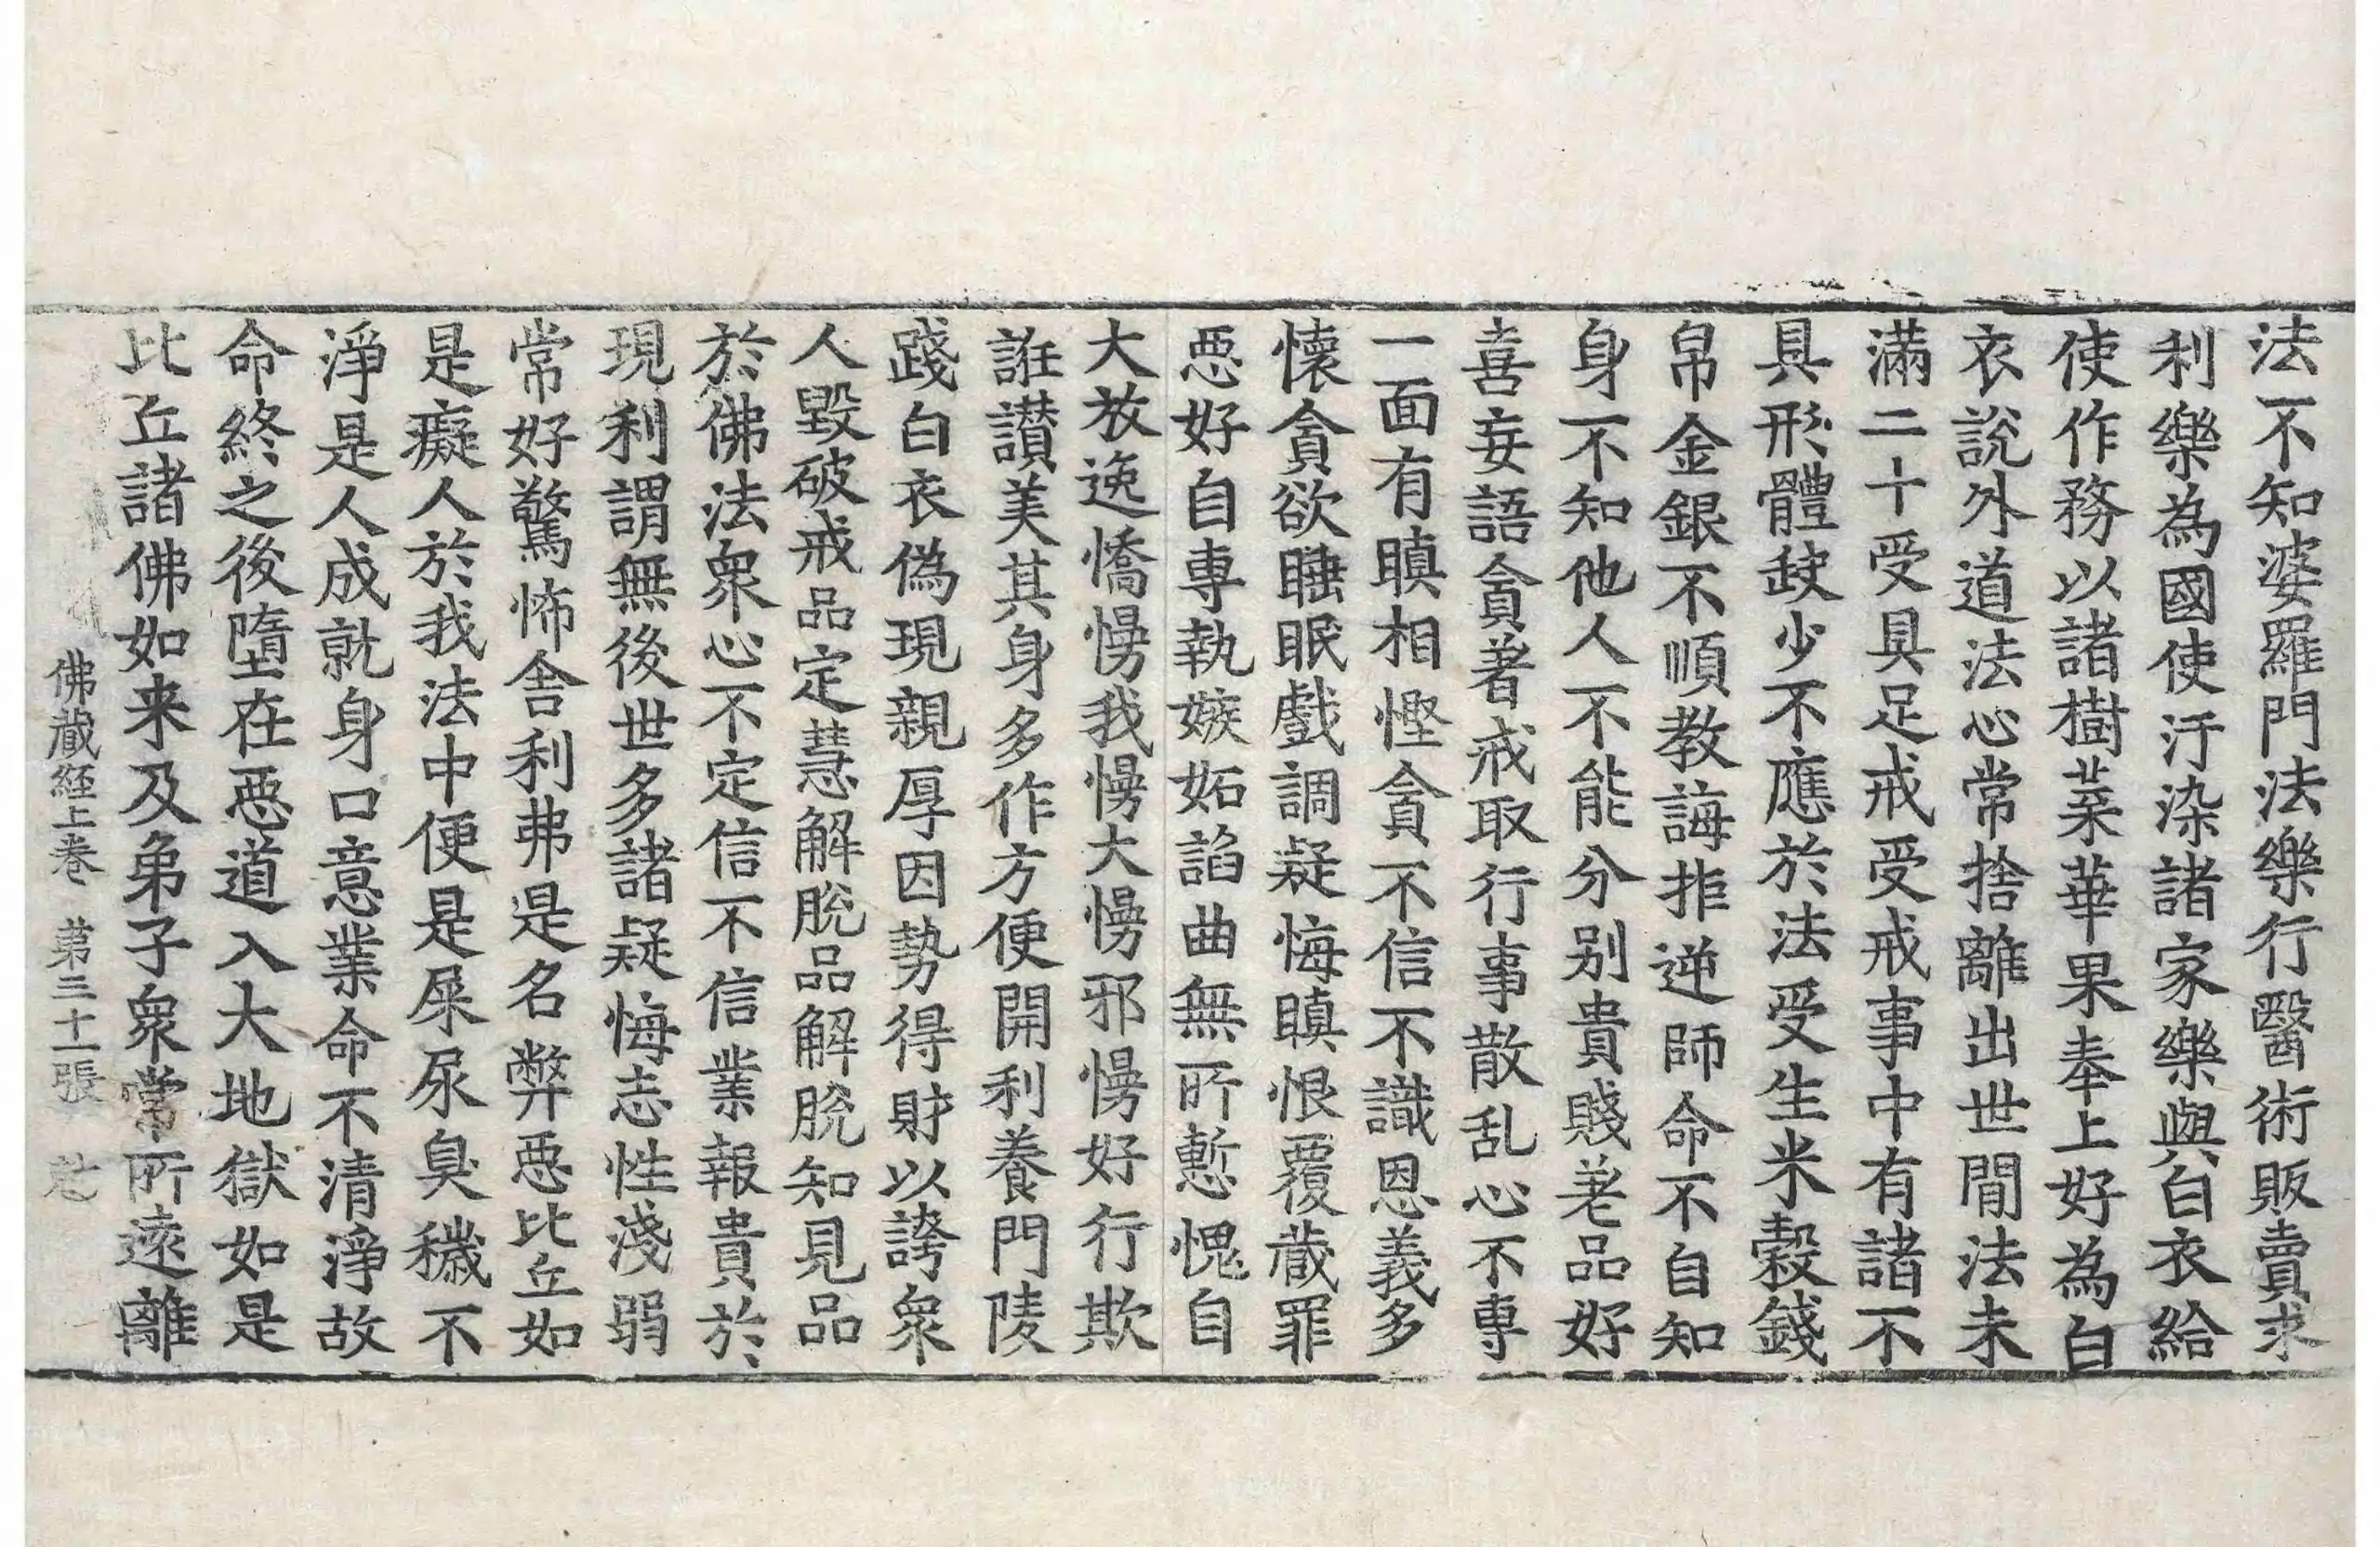 法不知婆羅門法樂行醫術販賣求
利樂為國使汙染諸家樂與白衣給
使作務以諸樹菜華果奉上好為白
衣說外道法心常捨離出世閒法未
滿二十受具足戒受戒事中有諸不
具形體䟽少不應於法受生米糓錢
帛金銀不順教誨拒逆師命不自知
身不知他人不能分别貴賤美品好
喜妄語貪著戒取行事散乱心不專
一面有瞋相慳貪不信不識恩義多
懷貪欲睡眠戲調疑悔瞋恨覆蔵罪
惡好自專執嫉妬諂曲無所慙愧自
大放逸憍慢我慢大慢邪慢好行欺
誑讃美其身多作方便開利養門陵
踐白衣偽現親厚因勢得財以誇衆
人毀破戒品定慧解脫品解脫知見品
於佛法衆心不定信不信業報貴於
現利謂無後世多諸疑悔志性淺弱
常好驚怖舍利弗是名弊惡比丘如
是癡人於我法中便是屎尿臭穢不
淨是人成就身口意業命不清淨故
命終之後墮在惡道入大地獄如是
比丘諸佛如来及弟子衆常所遠離
佛蔵経上卷 第三十張